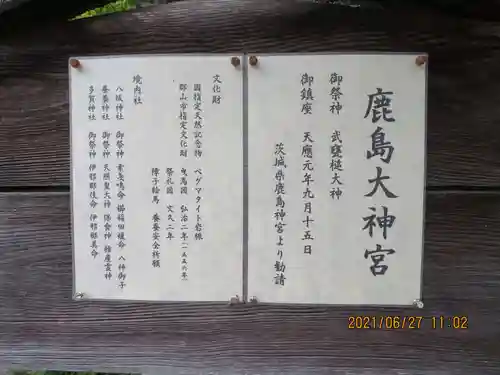 鹿島大神宮
御祭神 武甕槌大神
御鎮座 天應元年九月十五日
茨城県鹿島神宮より勧請
文化財
国指定天然記念物 ペグマタイト岩脈
郡山市指定文化財 曳馬図 弘治二年(一五五六年)
祭礼図 文久二年
障子絵馬 養蚕安全祈願
境内社
八坂神社 御祭神 素戔嗚命 櫛稲田姫命 八神御子
養蚕神社 御祭神 天照皇大神 保食神 稚産霊神
多賀神社 御祭神 伊邪那岐命 伊邪那美命
2021/06/27 11:02